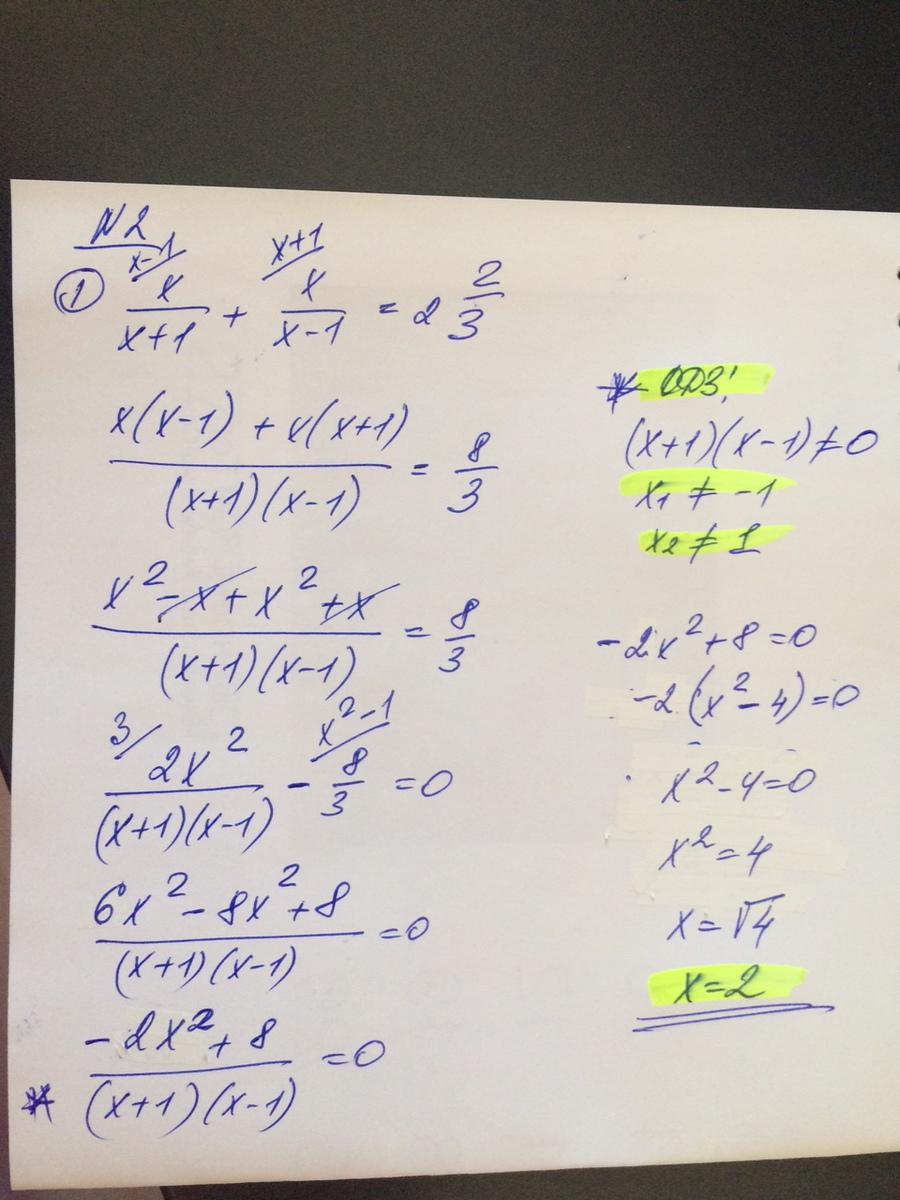 N2
x-1 x+1
① x/(x+1) + x/(x-1) = 2 2/3
(x(x-1) + x(x+1))/((x+1)(x-1)) = 8/3
(x² - x + x² + x)/((x+1)(x-1)) = 8/3
3/ x²-1
2x²/((x+1)(x-1)) - 8/3 = 0
(6x² - 8x² + 8)/((x+1)(x-1)) = 0
* (-2x² + 8)/((x+1)(x-1)) = 0
* ОДЗ!
(x+1)(x-1)≠0
x₁ ≠ -1
x₂ ≠ 1
-2x² + 8 = 0
-2(x² - 4) = 0
x² - 4 = 0
x² = 4
x = √4
x = 2